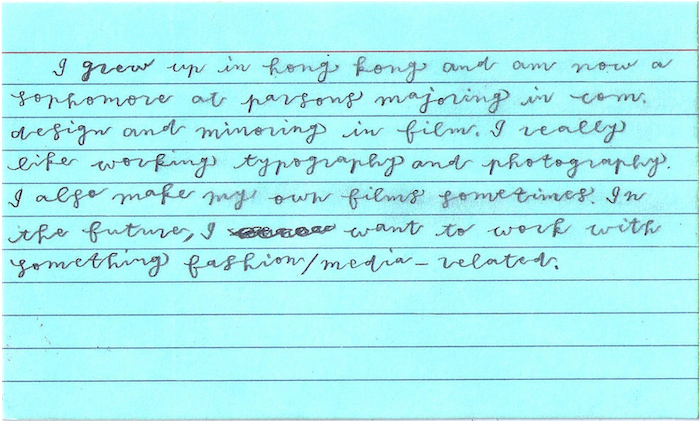 I grew up in hong kong and am now a
sophomore at parsons majoring in com.
design and minoring in film. I really
like working typography and photography.
I also make my own films sometimes. In
the future, I want to work with
something fashion/media-related.